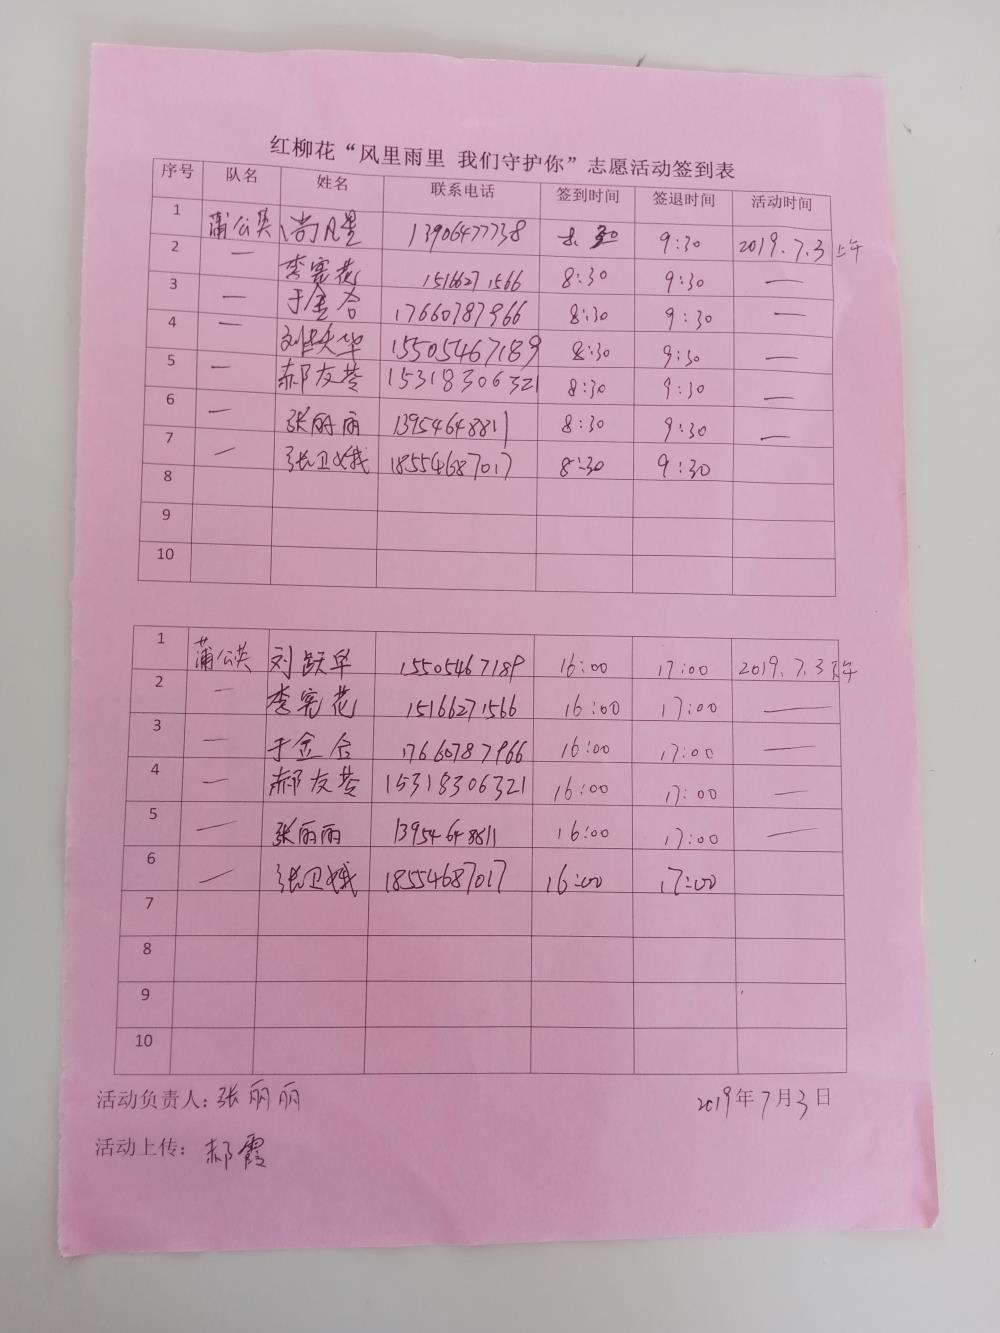 红柳花“风里雨里 我们守护你”志愿活动签到表
序号 队名 姓名 联系电话 签到时间 签退时间 活动时间
1 蒲公英 尚凡星 13906477738 9:30 2019.7.3上午
2 — 李宪花 15166271566 8:30 9:30 —
3 — 于金合 17660787966 8:30 9:30 —
4 — 刘跃华 15505467189 8:30 9:30 —
5 — 郝友苓 15318306321 8:30 9:30 —
6 — 张丽丽 13954648811 8:30 9:30 —
7 — 张卫娥 18554687017 8:30 9:30
8
9
10
1 蒲公英 刘跃华 15505467189 16:00 17:00 2019.7.3下午
2 — 李宪花 15166271566 16:00 17:00 —
3 — 于金合 17660787966 16:00 17:00 —
4 — 郝友苓 15318306321 16:00 17:00 —
5 — 张丽丽 13954648811 16:00 17:00 —
6 — 张卫娥 18554687017 16:00 17:00
7
8
9
10
活动负责人：张丽丽 2019年7月3日
活动上传：郝霞